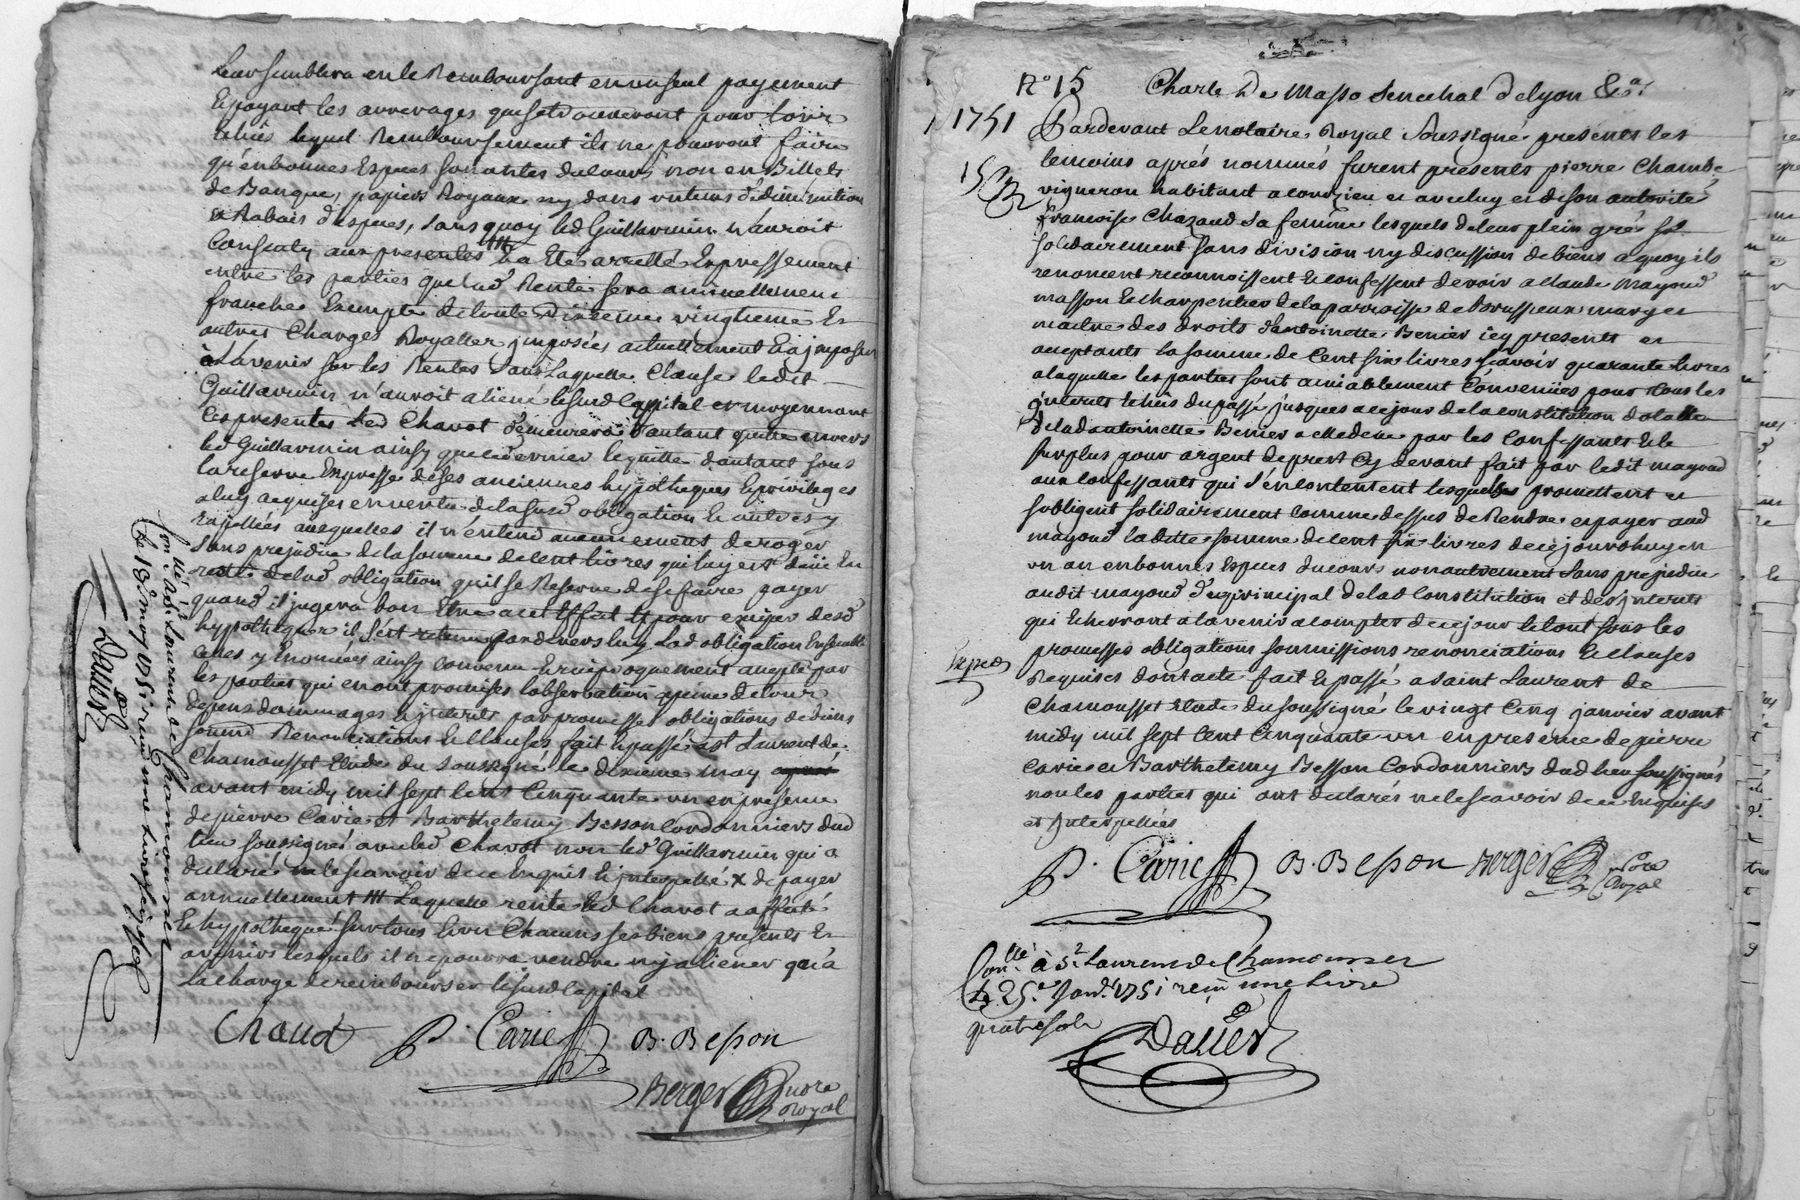 leur semblera en le Remboursant en un seul payement
Et payant les arrerages qui se trouveront pour lors
echûs lequel Remboursement ils ne pourront faire
qu'en bonnes Especes sonantes du cours non en Billets
de Banque, papiers Royaux ny dans un tems de diminution
et Rabais d'especes, sans quoy led Guillarmin n'auroit
Consenty aux presentes Ill a Eté arretté Expressement
entre les parties que lad.e Rente sera annuellement
franche Exempte de toute Dixieme vingtieme Et
autres Charges Royalles imposées actuellement Et a jmposer
à L'avenir sur les Rentes sans Laquelle Clause ledit
Guillarmin n'auroit aliené le susd Capital et moyennant
Ces presentes Led Chavot demeurera d'autant quitte envers
led Guillarmin ainsy que ce dernier le quitte d'autant sous
la reserve Expresse de ses anciennes hypotheques Et privileges
a luy acquises en vertu de la susd obligation Et autres y
rapellées auxquelles il n'entend aucunement deroger
sans prejudice de la somme de Cent livres qui luy est düe En
reste de lad obligation qu'il se Reserve de se faire payer
quand il jugera bon Etre a cet Effet Et pour exiger desd
hypotheques il s'est retenu pardevers luy Lad obligation Ensemble
celles y Enoncées ainsy convenu Et reciproquement accepté par
les parties qui en ont promises l'observation a peine de tous
depens dommages Et jnterets par promesses obligations de biens
soumis.d Renonciations Et Clauses fait Et passé a S.t Laurent de
Chamousset Etude du soussigné le dixieme may
avant midy mil sept Cent Cinquante un en presence
de pierre Carie et Barthelemy Besson Cordonniers dud
lieu soussignés avec led Chavot non led Guillarmin qui a
declaré ne le scavoir de ce Enquis Et jnterpellé x de payer
annuellement Ill Laquelle rente led Chavot a affecté
Et hypothequé sur tous Et un Chacuns ses biens presents Et
avenirs lesquels il ne pourra vendre ny aliener qu'à
La charge de rembourser le susd Capital
Chavot P. Carie B. Besson
Berger no.re
Royal
Con.llé à S.t Laurent de Chamousset
Le 18 may 1751 reçu une livre
Davier
N.o 15 Charle De Masso Senechal de lyon &.a
1751 Pardevant Le notaire Royal soussigné presents les
temoins aprés nommés furent presents pierre Chambe
vigneron habitant a et avec luy et de son autorité
francoise Chazaud sa femme lesquels de leur plein gré
solidairement sans division ny discussion de biens a quoy ils
renoncent reconnoissent Et confessent devoir a Claude mayoud
masson Et charpentier de la parroisse de Brussieux marge et
maitre des droits d'antoinette Berrier icy presents et
acceptants la somme de Cent six livres scavoir quarante livres
a laquelle les parties sont amiablement Convenües pour tous les
jnterets echûs du passé jusques a ce jour de la constitution dotalle
de lad antoinette Berrier a elle deüe par les Confessants Et le
surplus pour argent de prest Cy devant fait par ledit mayoud
aux Confessants qui s'en Contentent lesquelles promettent et
s'obligent solidairement comme dessus de Rendre et payer aud
mayoud ladite somme de Cent six livres de ce jourd'huy en
un an en bonnes Especes du cours non autrement sans prejudice
audit mayoud du principal de lad Constitution et des jnterets
qui Echerront a l'avenir a compter de ce jour Et tout sous les
promesses obligations soumissions renonciations Et Clauses
Requises dont acte fait Et passé a saint Laurent de
Chamousset Etude du soussigné le vingt Cinq janvier avant
midy mil sept Cent Cinquante un en presence de pierre
Carie et Barthelemy Besson Cordonniers dud lieu soussignés
non les parties qui ont declarés ne le scavoir de ce Enquises
et jnterpellées
P. Carie B. Besson Berger no.re
Royal
Con.llé à S.t Laurent de Chamousset
Le 25.e Janv. 1751 reçu une Livre
quatre sols
Davier